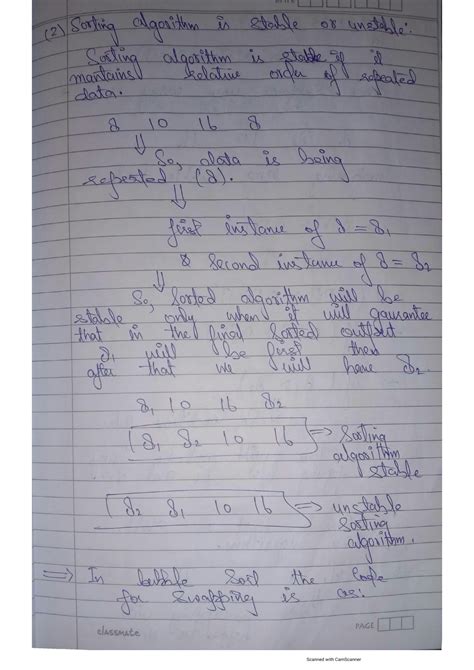 (2) Sorting algorithm is stable or unstable:
Sorting algorithm is stable if it
mantains relative order of repeated
data.
8 10 16 8
⇓
So, data is being
repeated (8).
⇓
first instance of 8 = 8₁
& second instance of 8 = 8₂
⇓
So, sorted algorithm will be
stable only when it will gaurantee
that in the final sorted output
8₁ will be first then
after that we will have 8₂.
8₁ 10 16 8₂
8₁ 8₂ 10 16 ⇒ Sorting
algorithm
stable
8₂ 8₁ 10 16 ⇒ unstable
sorting
algorithm.
⇒ In bubble sort the logic
for swapping is as:
classmate
PAGE
Scanned with CamScanner